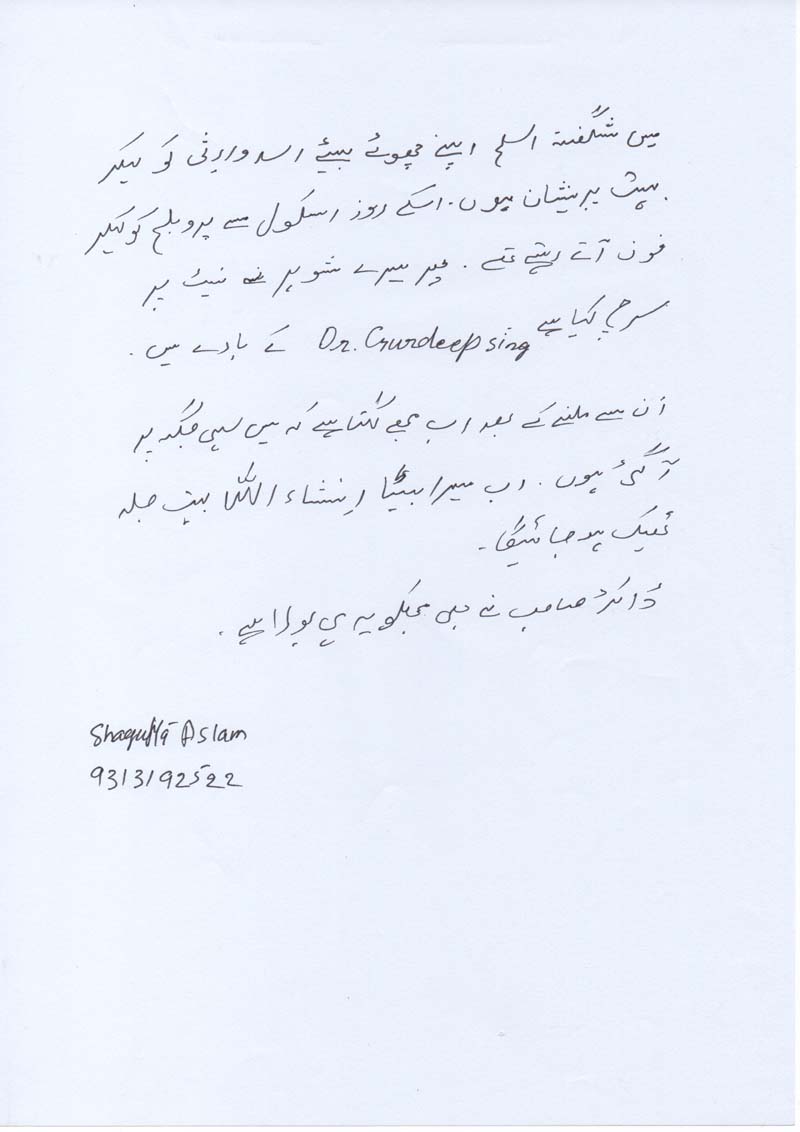 میں شگفتہ اسلم اپنے چھوٹے بیٹے اسد وارثی کو لیکر
بہت پریشان ہوں. اسکے روز اسکول سے پروبلم کو لیکر
فون آتے رہتے تھے. پھر میرے شوہر نے نیٹ پر
سرچ کیا ہے Dr. Gurdeep sing کے بارے میں.
اُن سے ملنے کے بعد اب مجھے لگتا ہے کہ میں سہی جگہ پر
آ گئی ہوں. اب میرا بیٹا اِنشاء اللہ بہت جلد
ٹھیک ہو جائیگا۔
ڈاکٹر صاحب نے بھی مجھکو یہ ہی بولا ہے.
Shagufta Aslam
9313192522